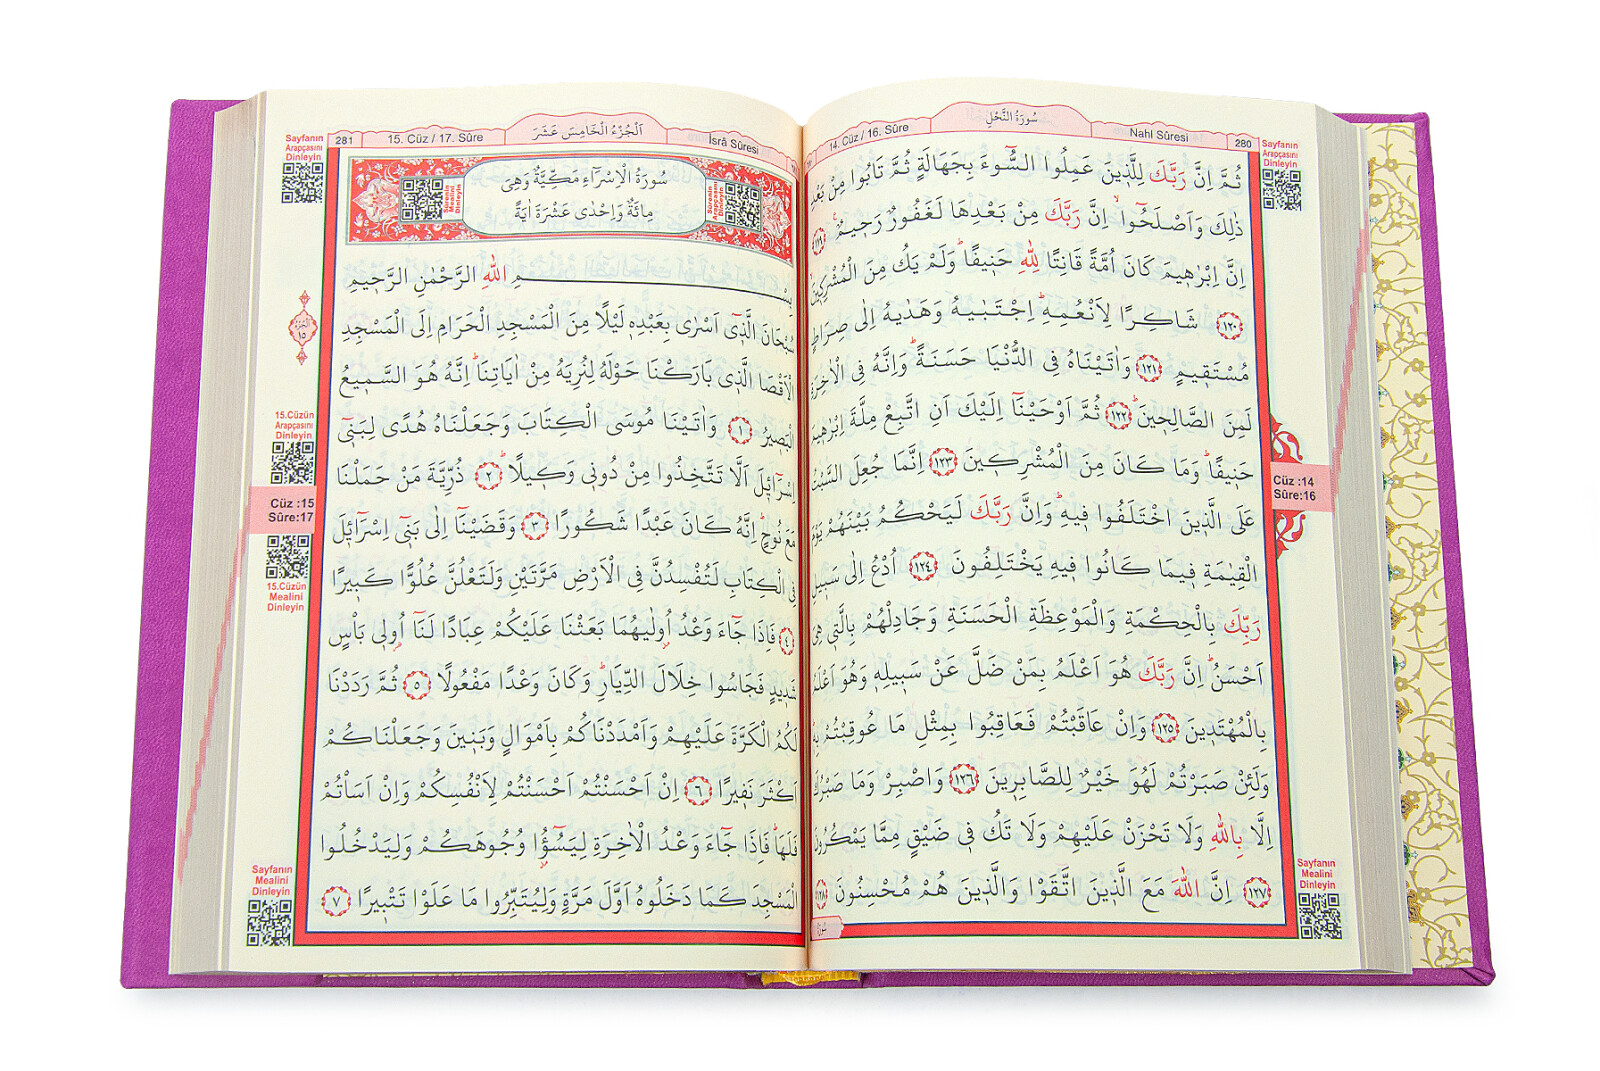 Sayfanın
Arapçasını
Dinleyin
280
Nahl Sûresi
سُورَةُ النَّحْلِ
14. Cüz / 16. Sûre
ثُمَّ اِنَّ رَبَّكَ لِلَّذٖينَ عَمِلُوا السُّٓوءَ بِجَهَالَةٍ ثُمَّ تَابُوا مِنْ بَعْدِ
ذٰلِكَ وَاَصْلَحُٓوا اِنَّ رَبَّكَ مِنْ بَعْدِهَا لَغَفُورٌ رَحٖيمٌ ﴿١١٩﴾
اِنَّ اِبْرٰهٖيمَ كَانَ اُمَّةً قَانِتًا لِلّٰهِ حَنٖيفًاؕ وَلَمْ يَكُ مِنَ الْمُشْرِكٖينَ
﴿١٢٠﴾ شَاكِرًا لِاَنْعُمِهٖؕ اِجْتَبٰيهُ وَهَدٰيهُ اِلٰى صِرَاطٍ
مُسْتَقٖيمٍ ﴿١٢١﴾ وَاٰتَيْنَاهُ فِي الدُّنْيَا حَسَنَةًؕ وَاِنَّهُ فِي الْاٰخِرَةِ
لَمِنَ الصَّالِحٖينَؕ ﴿١٢٢﴾ ثُمَّ اَوْحَيْنَٓا اِلَيْكَ اَنِ اتَّبِعْ مِلَّةَ اِبْرٰهٖيمَ
حَنٖيفًاؕ وَمَا كَانَ مِنَ الْمُشْرِكٖينَ ﴿١٢٣﴾ اِنَّمَا جُعِلَ السَّبْتُ
عَلَى الَّذٖينَ اخْتَلَفُوا فٖيهِؕ وَاِنَّ رَبَّكَ لَيَحْكُمُ بَيْنَهُمْ يَوْمَ
الْقِيٰمَةِ فٖيمَا كَانُوا فٖيهِ يَخْتَلِفُونَ ﴿١٢٤﴾ اُدْعُ اِلٰى سَبٖيلِ
رَبِّكَ بِالْحِكْمَةِ وَالْمَوْعِظَةِ الْحَسَنَةِ وَجَادِلْهُمْ بِالَّتٖي هِيَ
اَحْسَنُؕ اِنَّ رَبَّكَ هُوَ اَعْلَمُ بِمَنْ ضَلَّ عَنْ سَبٖيلِهٖ وَهُوَ اَعْلَمُ
بِالْمُهْتَدٖينَ ﴿١٢٥﴾ وَاِنْ عَاقَبْتُمْ فَعَاقِبُوا بِمِثْلِ مَا عُوقِبْتُمْ بِهٖ
وَلَئِنْ صَبَرْتُمْ لَهُوَ خَيْرٌ لِلصَّابِرٖينَ ﴿١٢٦﴾ وَاصْبِرْ وَمَا صَبْرُكَ
اِلَّا بِاللّٰهِ وَلَا تَحْزَنْ عَلَيْهِمْ وَلَا تَكُ فٖي ضَيْقٍ مِمَّا يَمْكُرُونَ
﴿١٢٧﴾ اِنَّ اللّٰهَ مَعَ الَّذٖينَ اتَّقَوْا وَالَّذٖينَ هُمْ مُحْسِنُونَ ﴿١٢٨﴾
Cüz :14
Sûre:16
Sayfanın
Mealini
Dinleyin
İsrâ Sûresi
اَلْجُزْءُ الْخَامِسَ عَشَرَ
15. Cüz / 17. Sûre
281
Sayfanın
Arapçasını
Dinleyin
Sûrenin
Arapçasını
Dinleyin
سُورَةُ الْاِسْرَٓاءِ مَكِّيَّةٌ وَهِيَ
مِائَةٌ وَاِحْدٰى عَشْرَةَ اٰيَةً
Sûrenin
Mealini
Dinleyin
بِسْمِ اللّٰهِ الرَّحْمٰنِ الرَّحٖيمِ
سُبْحَانَ الَّذٖٓي اَسْرٰى بِعَبْدِهٖ لَيْلًا مِنَ الْمَسْجِدِ الْحَرَامِ اِلَى الْمَسْجِدِ
الْاَقْصَا الَّذٖي بَارَكْنَا حَوْلَهُ لِنُرِيَهُ مِنْ اٰيَاتِنَاؕ اِنَّهُ هُوَ السَّمٖيعُ
الْبَصٖيرُ ﴿١﴾ وَاٰتَيْنَا مُوسَى الْكِتَابَ وَجَعَلْنَاهُ هُدًى لِبَنٖٓي
اِسْرَٓائٖلَ اَلَّا تَتَّخِذُوا مِنْ دُونٖي وَكٖيلًاؕ ﴿٢﴾ ذُرِّيَّةَ مَنْ حَمَلْنَا
مَعَ نُوحٍؕ اِنَّهُ كَانَ عَبْدًا شَكُورًا ﴿٣﴾ وَقَضَيْنَٓا اِلٰى بَنٖٓي اِسْرَٓائٖلَ
فِي الْكِتَابِ لَتُفْسِدُنَّ فِي الْاَرْضِ مَرَّتَيْنِ وَلَتَعْلُنَّ عُلُوًّا كَبٖيرًا
﴿٤﴾ فَاِذَا جَٓاءَ وَعْدُ اُو۫لٰيهُمَا بَعَثْنَا عَلَيْكُمْ عِبَادًا لَنَٓا اُو۬لٖي بَأْسٍ
شَدٖيدٍ فَجَاسُوا خِلَالَ الدِّيَارِؕ وَكَانَ وَعْدًا مَفْعُولًا ﴿٥﴾ ثُمَّ رَدَدْنَا
لَكُمُ الْكَرَّةَ عَلَيْهِمْ وَاَمْدَدْنَاكُمْ بِاَمْوَالٍ وَبَنٖينَ وَجَعَلْنَاكُمْ
اَكْثَرَ نَفٖيرًا ﴿٦﴾ اِنْ اَحْسَنْتُمْ اَحْسَنْتُمْ لِاَنْفُسِكُمْ وَاِنْ اَسَأْتُمْ
فَلَهَاؕ فَاِذَا جَٓاءَ وَعْدُ الْاٰخِرَةِ لِيَسُٓؤُ۫ا وُجُوهَكُمْ وَلِيَدْخُلُوا
الْمَسْجِدَ كَمَا دَخَلُوهُ اَوَّلَ مَرَّةٍ وَلِيُتَبِّرُوا مَا عَلَوْا تَتْبٖيرًا ﴿٧﴾
اَلْجُزْءُ
١٥
15.Cüzün
Arapçasını
Dinleyin
Cüz :15
Sûre:17
15.Cüzün
Mealini
Dinleyin
Sayfanın
Mealini
Dinleyin